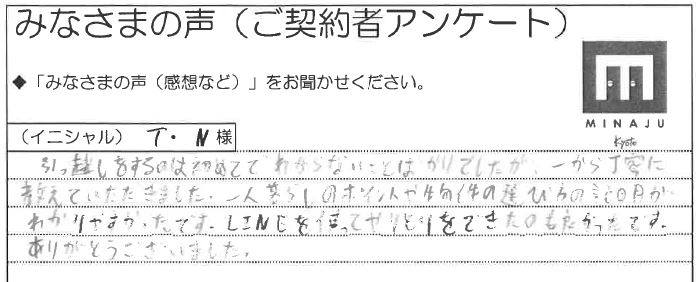 みなさまの声（ご契約者アンケート）
◆「みなさまの声（感想など）」をお聞かせください。
MINAJU
Kyoto
（イニシャル） T・N 様
引っ越しをするのは初めてでわからないことばかりでしたが、一から丁寧に
教えていただきました。一人暮らしのポイントや物件の選び方の説明が
わかりやすかったです。LINEを使ってやりとりをできたのも良かったです。
ありがとうございました。